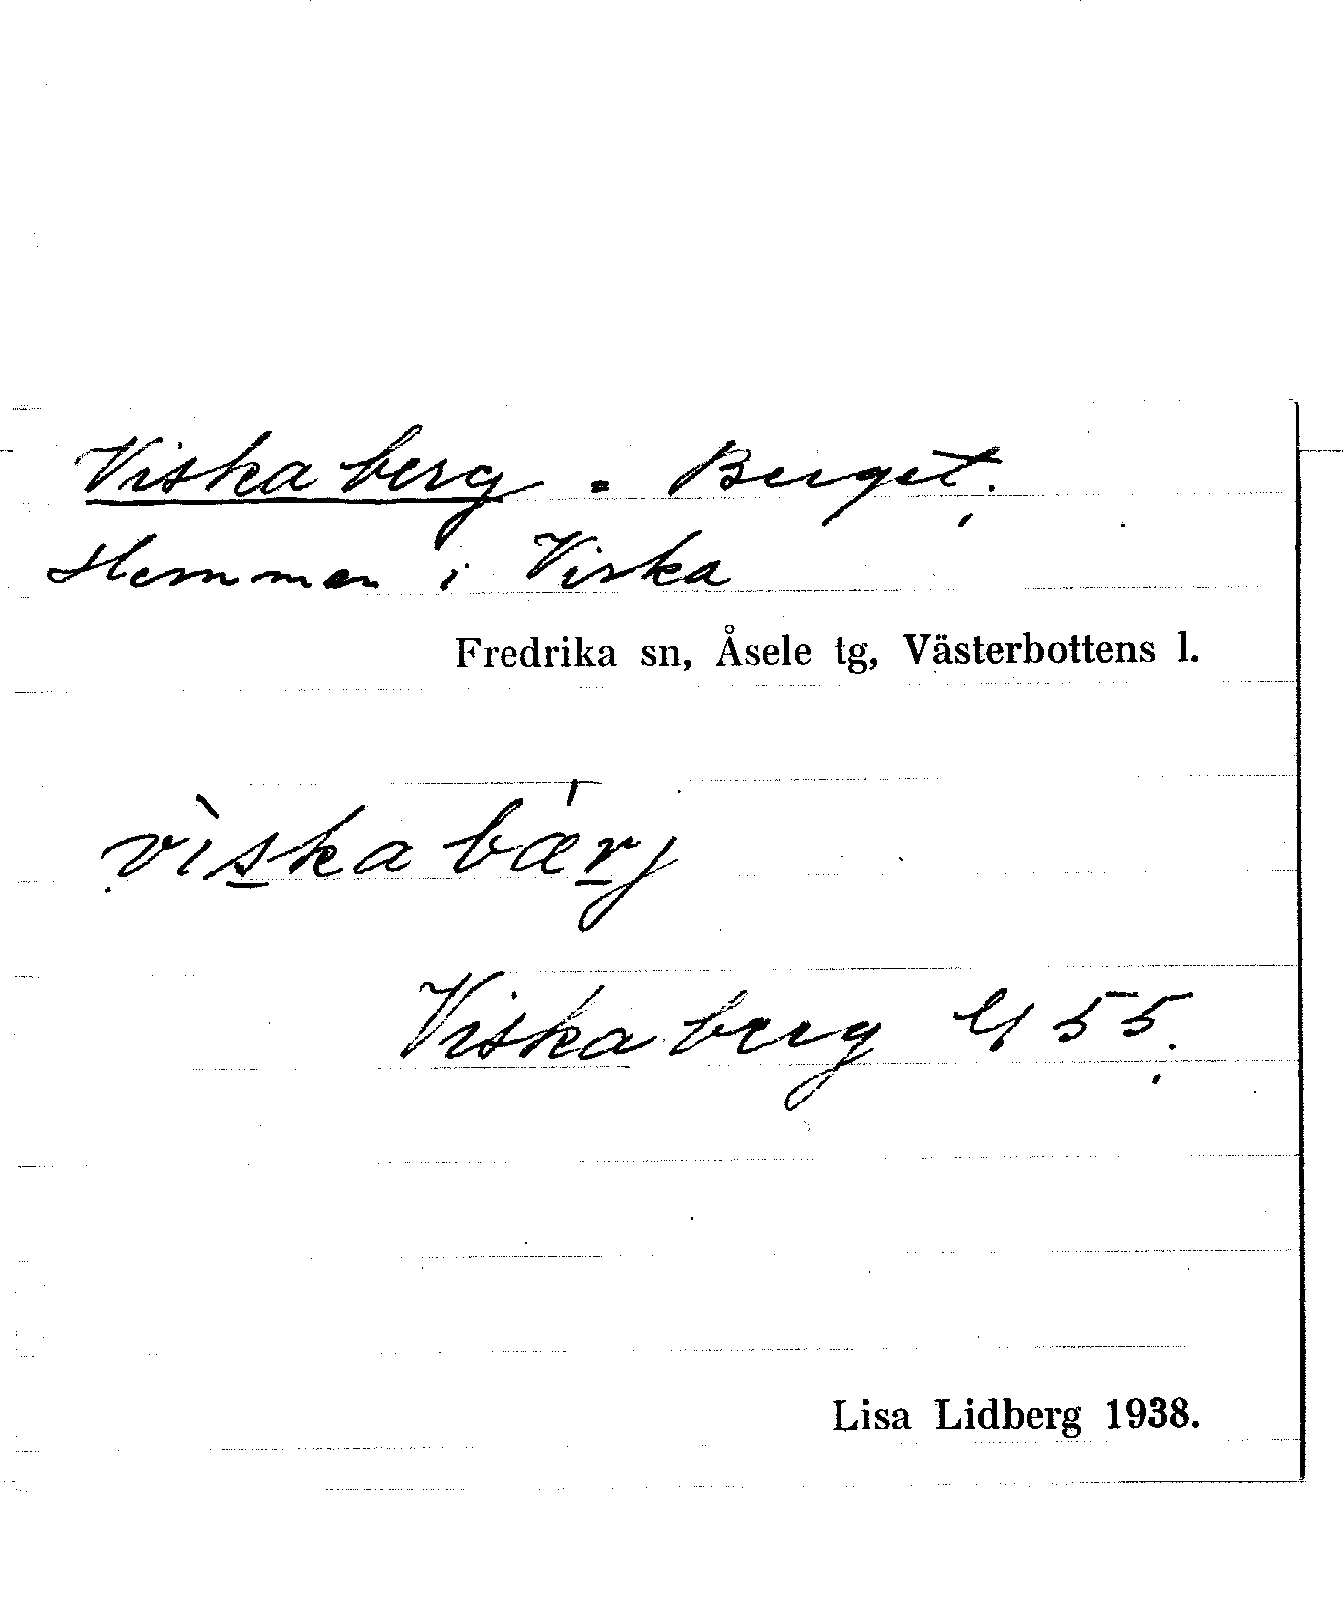 Viskaberg = Berget.
Hemman i Viska
Fredrika sn, Åsele tg, Västerbottens l.
vìs̲kabæŕ̲j
Viskaberg 55.
Lisa Lidberg 1938.